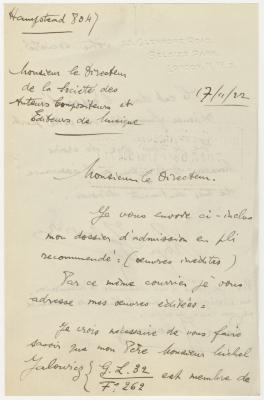 Hampstead 8047
BELSIZE PARK,
LONDON, N.W.3.
17/11/22
Monsieur le Directeur
de la Société des
Auteurs Compositeurs et
Editeurs de Musique
Monsieur le Directeur.
Je vous envoie ci-inclus
mon dossier d'admission en pli
recommandé : (œuvres inédites)
Par ce même courrier je vous
adresse mes œuvres éditées =
Je crois nécessaire de vous faire
savoir que mon Père Monsieur Michel
{ G.L. 32
F° 262 est membre de